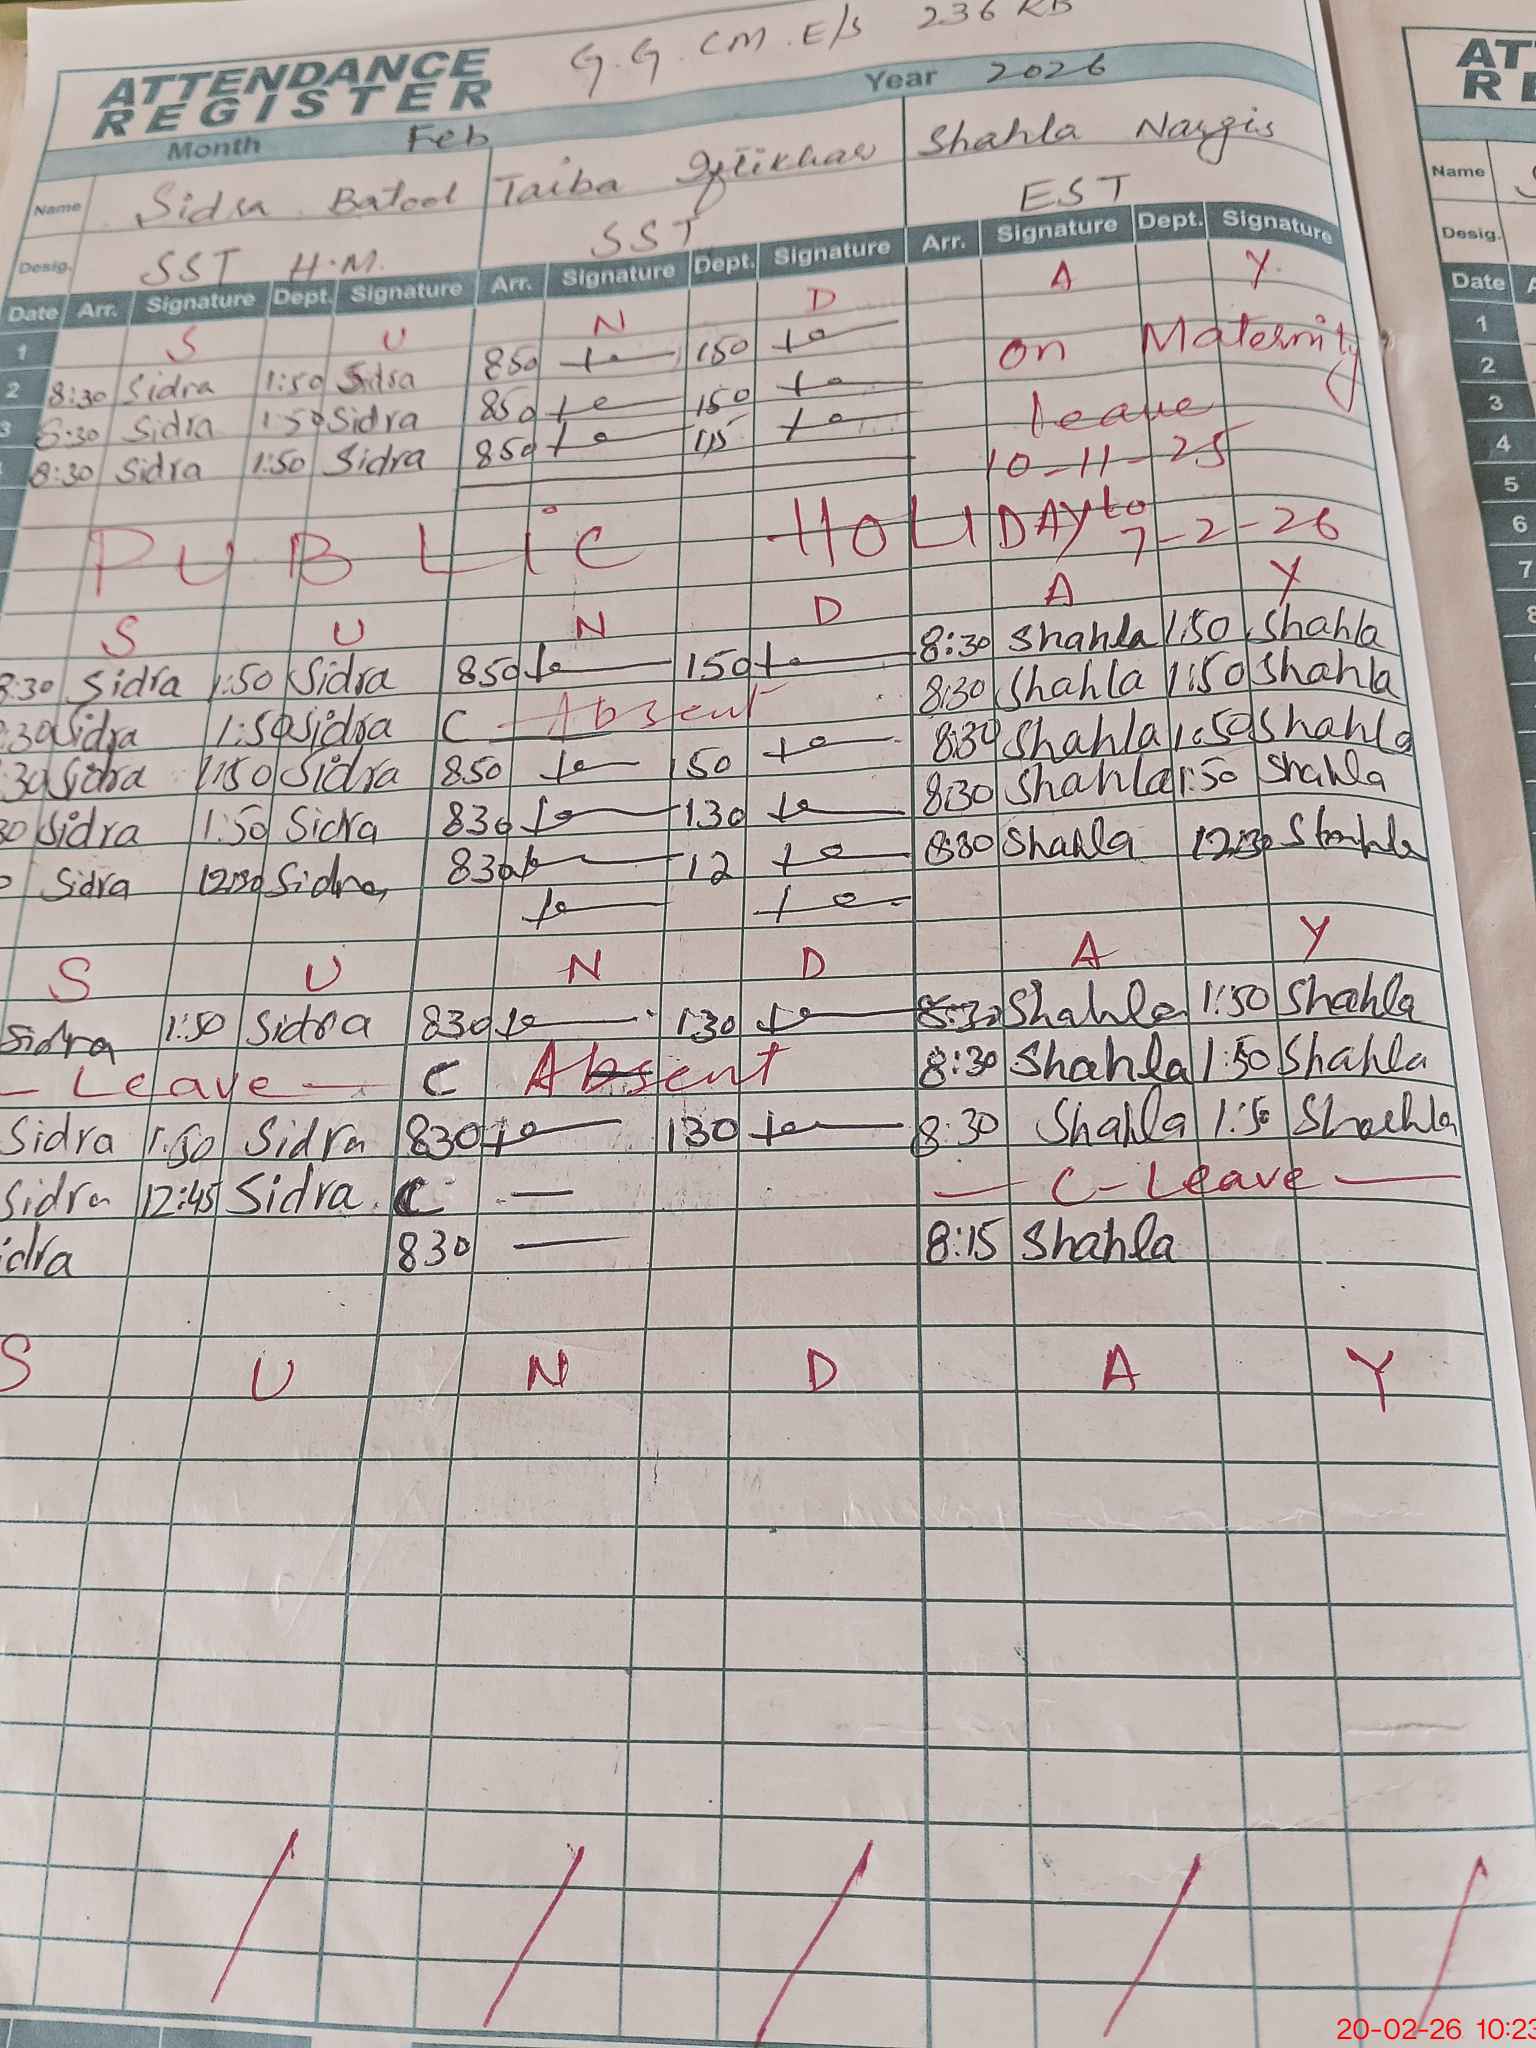 G.G.CM.E/S 236 RB
ATTENDANCE
REGISTER
Month Feb Year 2026
Name Sidra Batool Taiba Iftikhar Shahla Nargis
Desig. SST H.M. SST EST
Date Arr. Signature Dept. Signature Arr. Signature Dept. Signature Arr. Signature Dept. Signature
1 S U N D A Y
2 8:30 Sidra 1:50 Sidra 850 150 on Maternity
3 8:30 Sidra 1:50 Sidra 850 150 Leave
8:30 Sidra 1:50 Sidra 850 115 10-11-25
PUBLIC HOLIDAY to 7-2-26
S U N D A Y
8:30 Sidra 1:50 Sidra 850 150 8:30 Shahla 1:50 Shahla
:30 Sidra 1:50 Sidra C Absent 8:30 Shahla 1:50 Shahla
:30 Sidra 1:50 Sidra 850 150 8:30 Shahla 1:50 Shahla
30 Sidra 1:50 Sidra 830 130 8:30 Shahla 1:50 Shahla
Sidra 12:30 Sidra 830 12 8:30 Shahla 12:30 Shahla
S U N D A Y
Sidra 1:50 Sidra 830 130 8:30 Shahla 1:50 Shahla
- Leave - C Absent 8:30 Shahla 1:50 Shahla
Sidra 1:50 Sidra 830 130 8:30 Shahla 1:50 Shahla
Sidra 12:45 Sidra C - - C-Leave -
idra 830 - 8:15 Shahla
S U N D A Y
AT
RE
Name
Desig.
Date
1
2
3
4
5
6
7
8
20-02-26 10:23